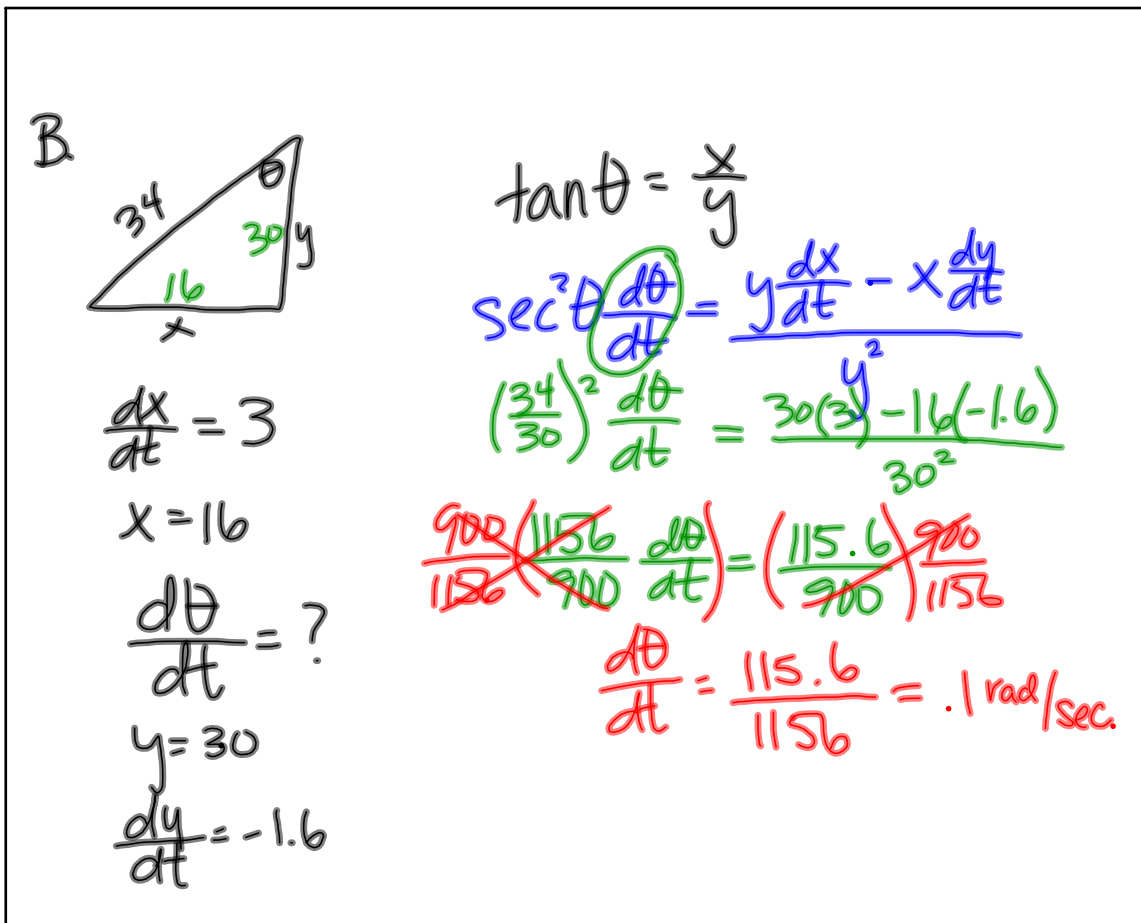 B.
34
θ
30 y
16
x
dx/dt = 3
x = 16
dθ/dt = ?
y = 30
dy/dt = -1.6
tan θ = x/y
sec²θ dθ/dt = (y dx/dt - x dy/dt)/y²
(34/30)² dθ/dt = (30(3) - 16(-1.6))/30²
900/1156 (1156/900 dθ/dt) = (115.6/900) 900/1156
dθ/dt = 115.6/1156 = .1 rad/sec.